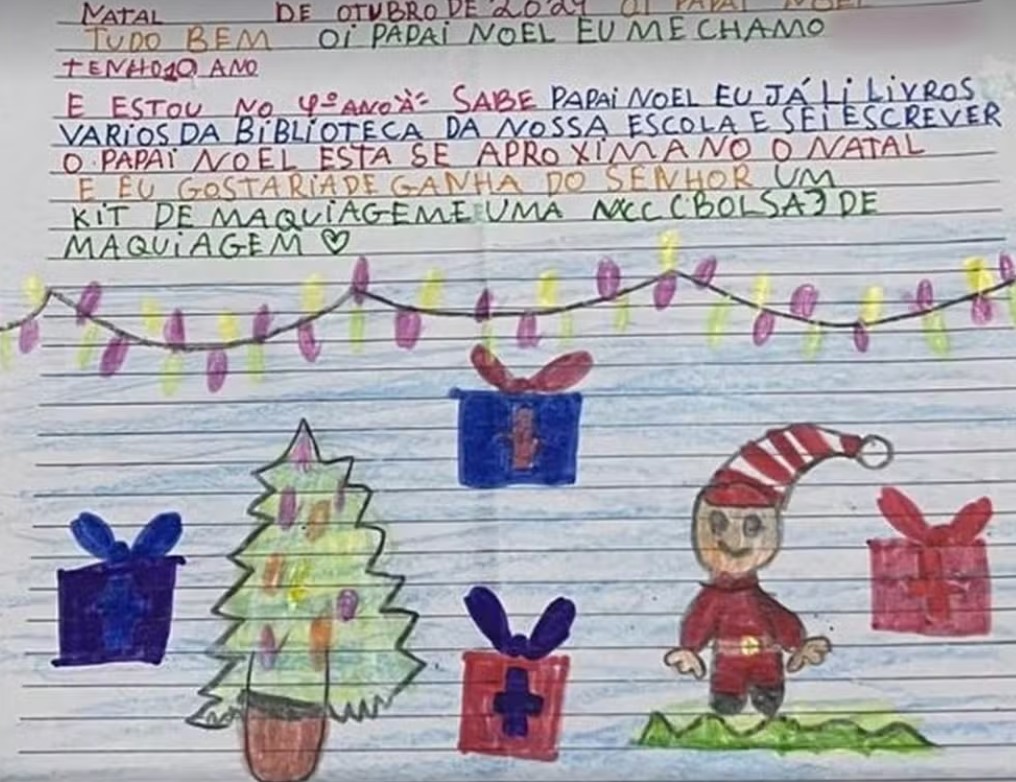 NATAL DE OTUBRO DE 2024 OI PAPAI NOEL
TUDO BEM OI PAPAI NOEL EU ME CHAMO
TENHO 10 ANO
E ESTOU NO 4º ANO "A" SABE PAPAI NOEL EU JÁ LI LIVROS
VARIOS DA BIBLIOTECA DA NOSSA ESCOLA E SEI ESCREVER
O PAPAI NOEL ESTA SE APROXIMANO O NATAL
E EU GOSTARIA DE GANHA DO SENHOR UM
KIT DE MAQUIAGEM E UMA (BOLSA) DE
MAQUIAGEM ♡